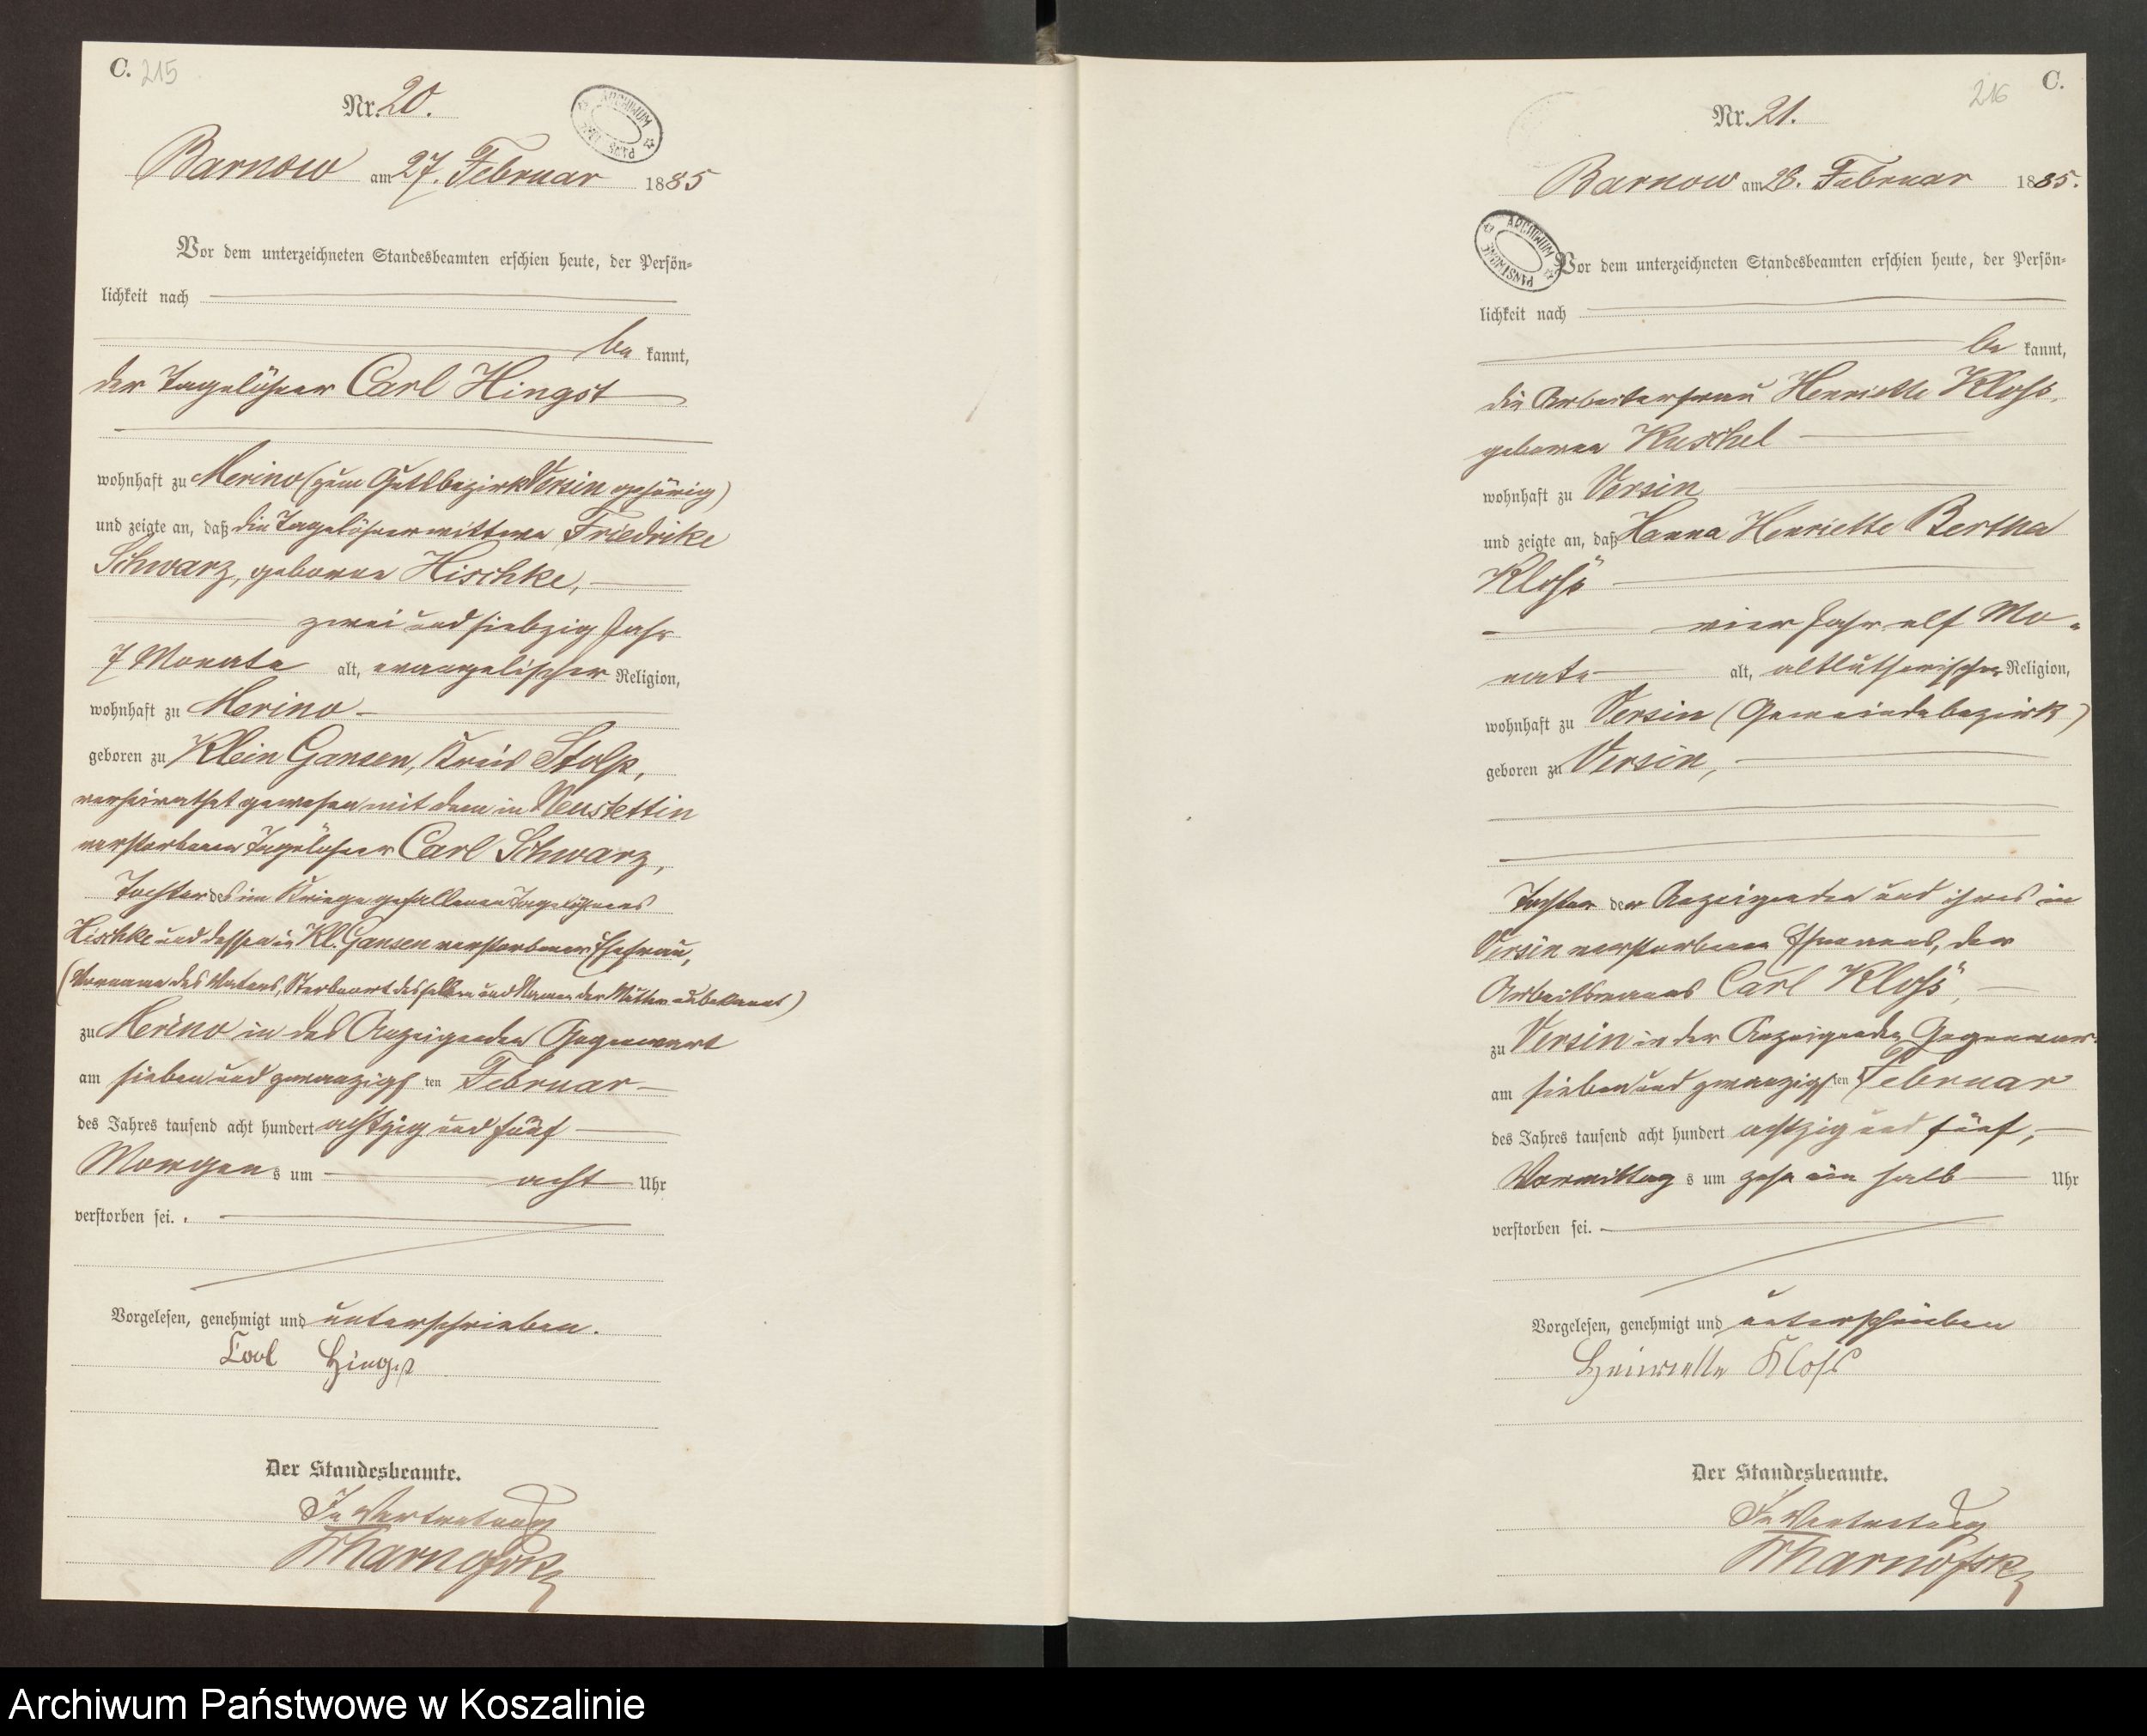 C. 215
Nr. 20.
ARCHIWUM PAŃSTWOWE
Barnow am 27. Februar 1885
Vor dem unterzeichneten Standesbeamten erschien heute, der Persön-
lichkeit nach
be kannt,
der Tagelöhner Carl Hingst
wohnhaft zu Merino (zum Gutsbezirk Versin gehörig)
und zeigte an, daß die Tagelöhnerwittwe Friedrike
Schwarz, geborene Hischke,
zwei und siebzig Jahr
7 Monate alt, evangelischer Religion,
wohnhaft zu Merino
geboren zu Klein Gansen, Kreis Stolp,
verheirathet gewesen mit dem in Neustettin
verstorbenen Tagelöhner Carl Schwarz,
Tochter des im Kriege gefallenen Tagelöhners
Hischke und dessen in Kl. Gansen verstorbener Ehefrau,
(Vorname des Vaters, Sterbeort desselben und Namen der Mutter unbekannt)
zu Merino in des Anzeigenden Gegenwart
am sieben und zwanzigsten Februar
des Jahres tausend acht hundert achtzig und fünf
Morgens um acht Uhr
verstorben sei.
Vorgelesen, genehmigt und unterschrieben.
Carl Hingst
Der Standesbeamte.
In Vertretung
C. 216
Nr. 21.
Barnow am 28. Februar 1885.
ARCHIWUM PAŃSTWOWE
Vor dem unterzeichneten Standesbeamten erschien heute, der Persön-
lichkeit nach
be kannt,
die Arbeiterfrau Henriette Kloß,
geborene Kuschel
wohnhaft zu Versin
und zeigte an, daß Hanna Henriette Bertha
Kloß
vier Jahr elf Mo-
nate alt, altlutherischer Religion,
wohnhaft zu Versin (Gemeindebezirk)
geboren zu Versin,
Tochter der Anzeigenden und ihres in
Versin verstorbenen Ehemannes, des
Arbeitsmanns Carl Kloß,
zu Versin in der Anzeigenden Gegenwart
am sieben und zwanzigsten Februar
des Jahres tausend acht hundert achtzig und fünf,
Vormittags um zehn ein halb Uhr
verstorben sei.
Vorgelesen, genehmigt und unterschrieben
Heinriette Kloß
Der Standesbeamte.
In Vertretung
Archiwum Państwowe w Koszalinie